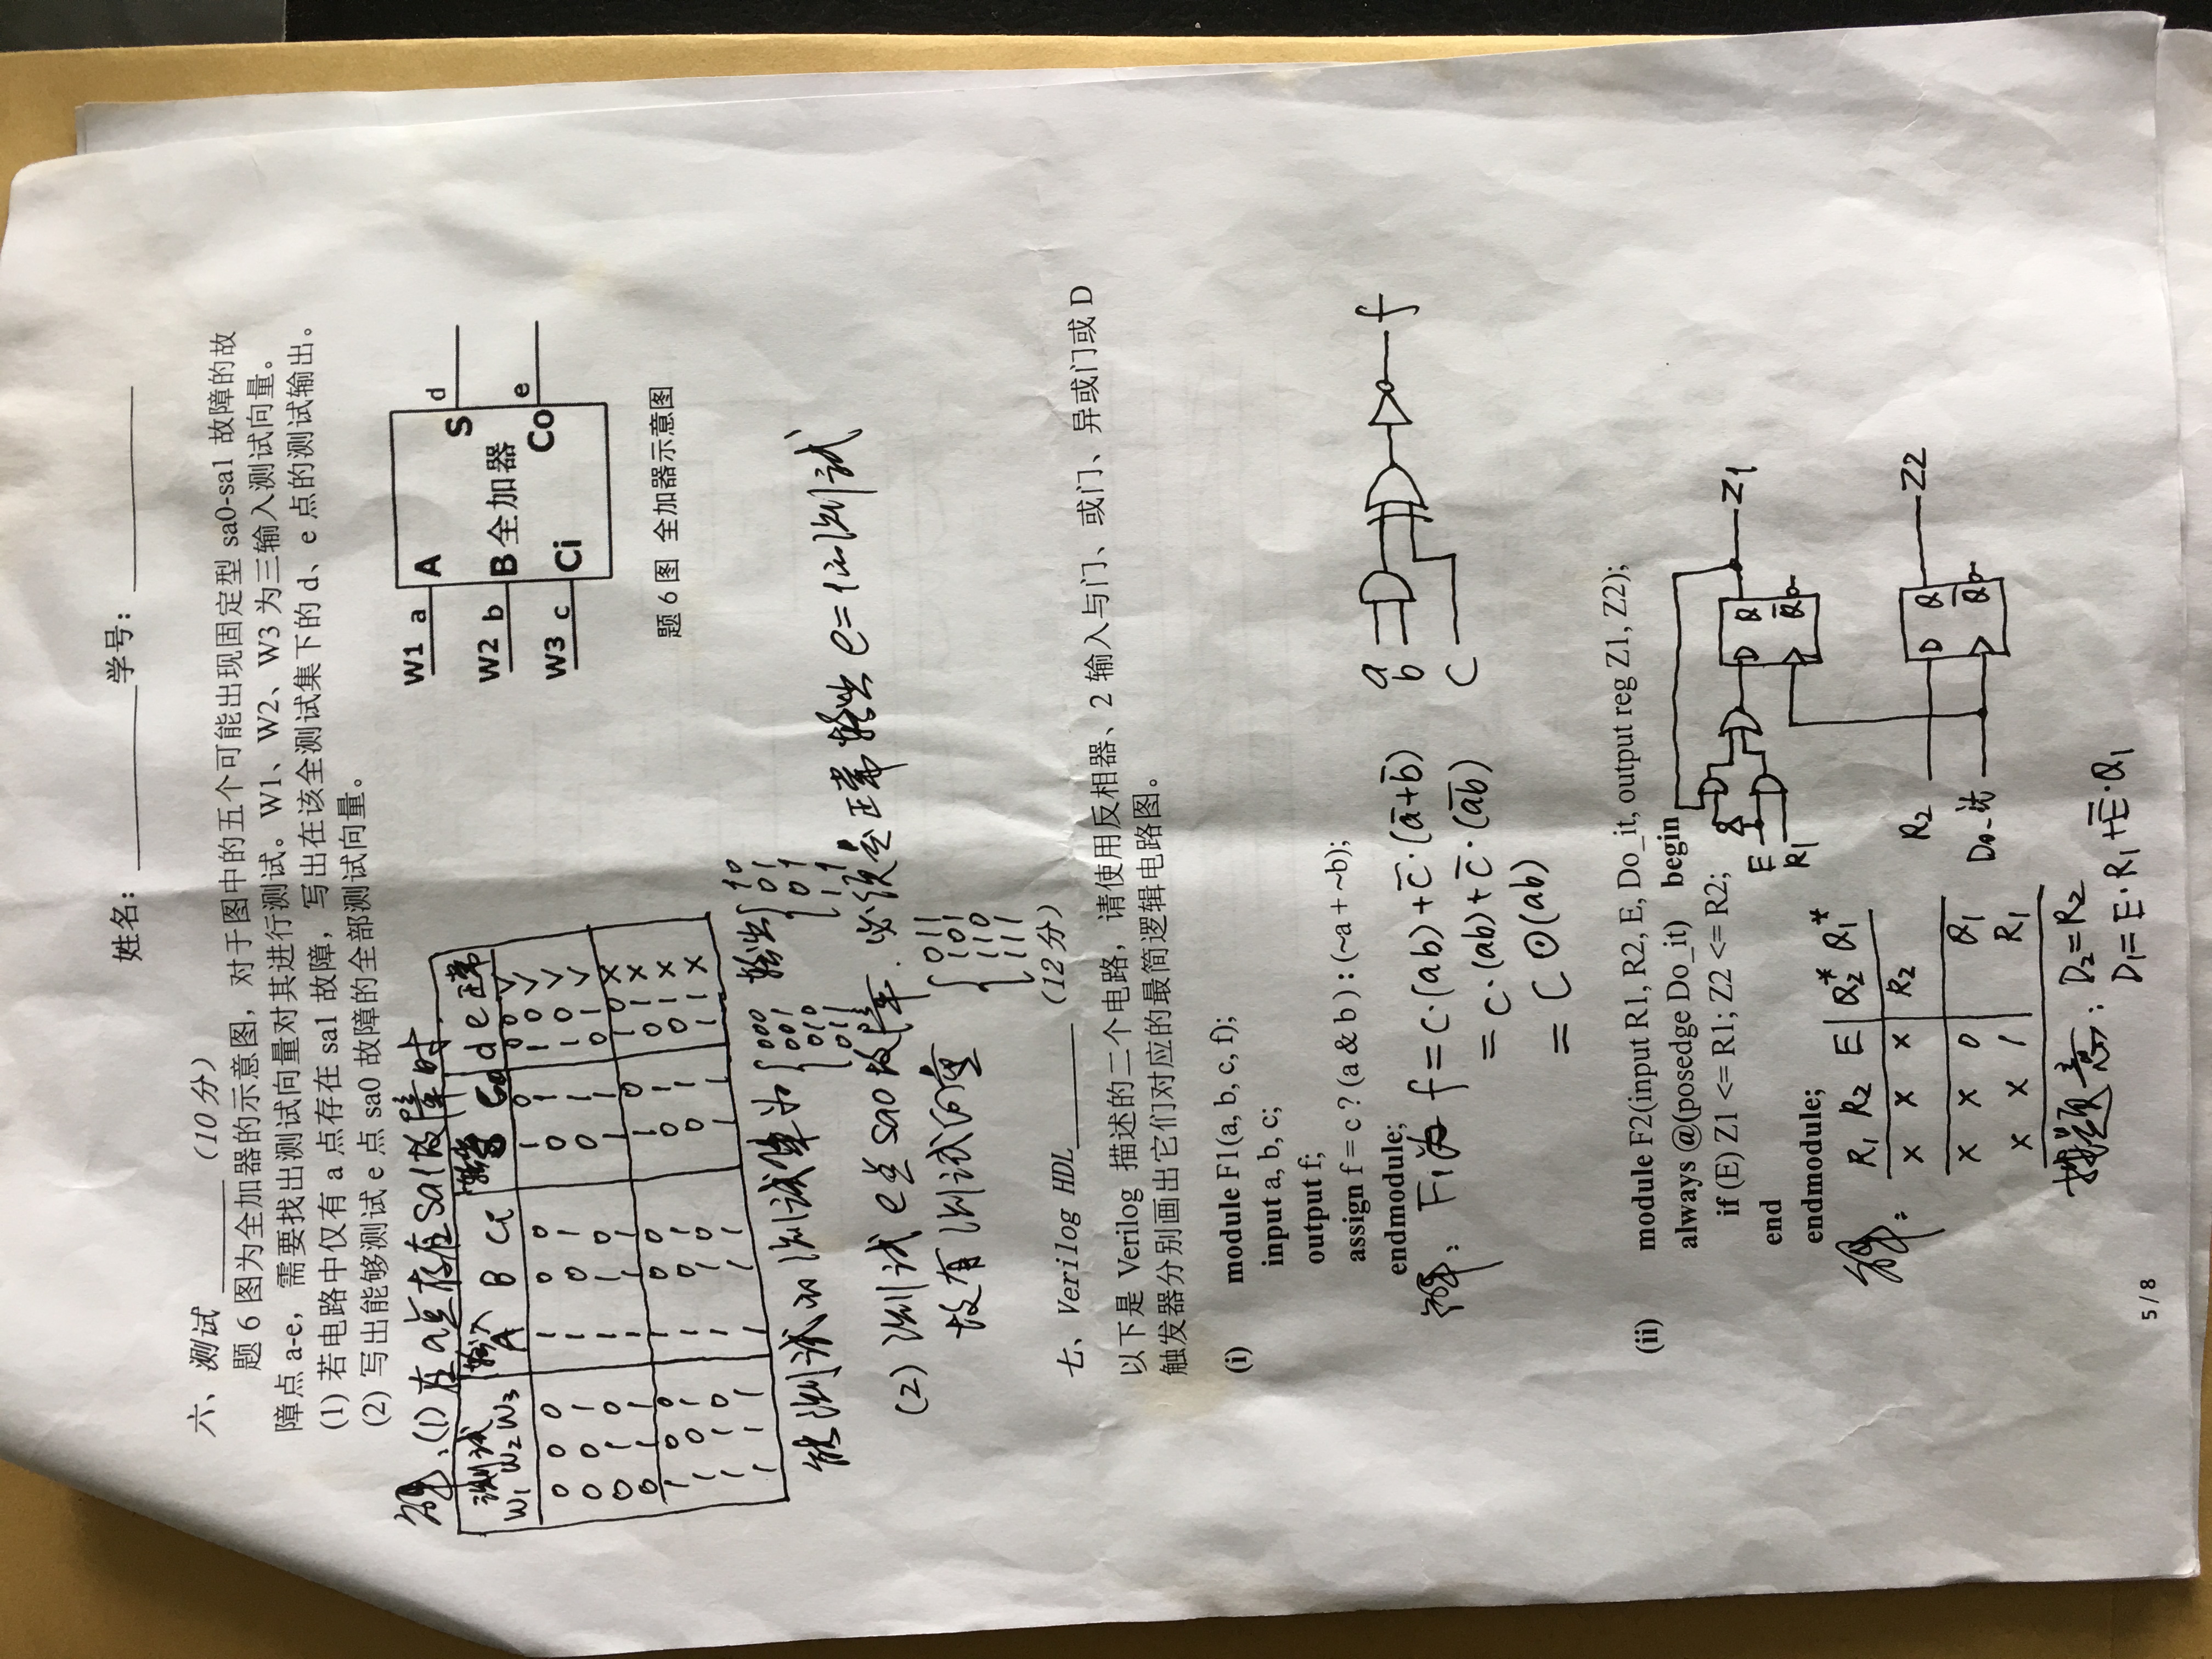 姓名：__________学号：__________
六、测试 ______（10分）
题 6 图为全加器的示意图，对于图中的五个可能出现固定型 sa0-sa1 故障的故
障点 a-e，需要找出测试向量对其进行测试。W1、W2、W3 为三输入测试向量。
(1) 若电路中仅有 a 点存在 sa1 故障，写出在该全测试集下的 d、e 点的测试输出。
(2) 写出能够测试 e 点 sa0 故障的全部测试向量。
解：(1) 在a点存在sa1故障时.
测试 输入
W1 W2 W3 A B Ci Co d e 正常
0 0 0 1 0 0 1 0 0 0 √
0 0 1 1 0 1 0 1 1 0 √
0 1 0 1 1 0 0 1 1 0 √
0 1 1 1 1 1 1 1 0 1 √
1 0 0 1 0 0 1 0 1 0 ×
1 0 1 1 0 1 0 1 0 1 ×
1 1 0 1 1 0 0 1 0 1 ×
1 1 1 1 1 1 1 1 1 1 ×
W1 a A
W2 b B 全加器
W3 c Ci
S d
Co e
题 6 图 全加器示意图
能测试的测试集为 000 输出 10
001 01
010 01
011 11
(2) 测试e点sa0故障. 必须是正常输出e=1的测试
故有测试向量 011
101
110
111
七、Verilog HDL______（12分）
以下是 Verilog 描述的二个电路，请使用反相器、2 输入与门、或门、异或门或 D
触发器分别画出它们对应的最简逻辑电路图。
(i) module F1(a, b, c, f);
input a, b, c;
output f;
assign f = c ? (a & b ) : (~a + ~b);
endmodule;
解：F1为 f = c·(ab) + c̅·(a̅+b̅)
= c·(ab) + c̅·(a̅b̅)
= C⊙(ab)
a
b
C
f
(ii) module F2(input R1, R2, E, Do_it, output reg Z1, Z2);
always @(posedge Do_it) begin
if (E) Z1 <= R1; Z2 <= R2;
end
endmodule;
E
R1
D Q
Q̅
Z1
解：
R1 R2 E Q2* Q1*
× × × R2
× × 0 Q1
× × 1 R1
R2
Do_it
D Q
Q̅
Z2
按题意：D2=R2
D1=E·R1+E̅·Q1
5 / 8